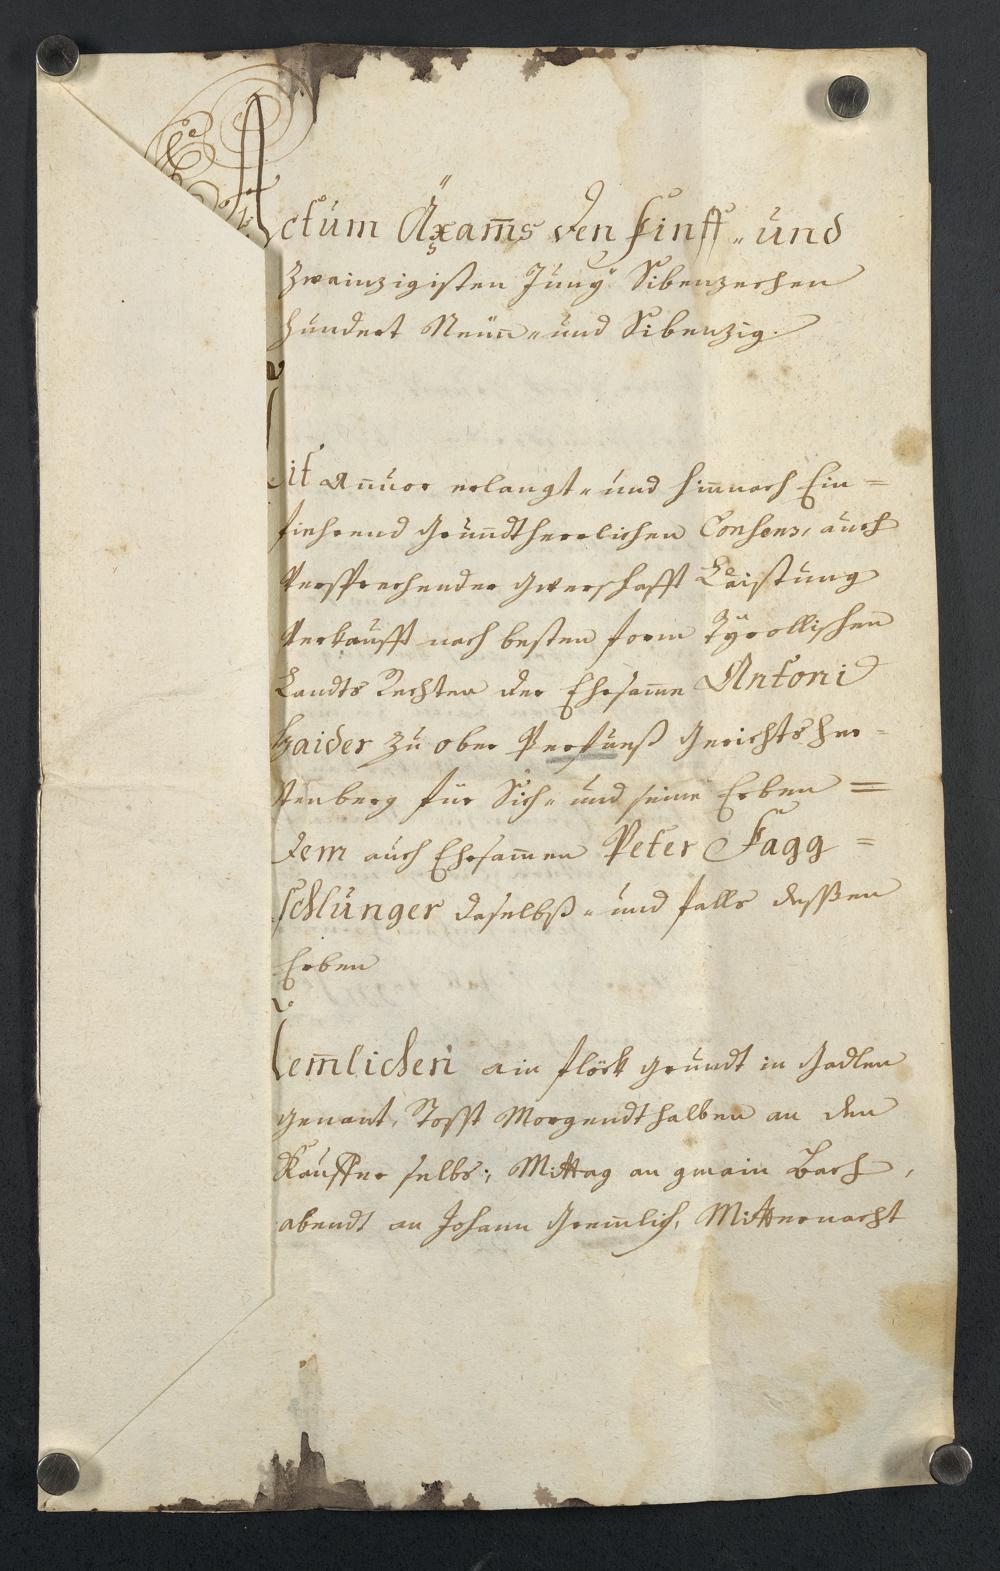 Actum Äxam̅s den finff„ und
Zwainzigisten Juny Sibenzechen
hundert Neün„ und Sibenzig.
Mit anvor erlangt„ und hinnach Ein=
fiehrend Grundtherrlichen Consens, auch
Versprechender Gwerschafft Laistung
Verkaufft nach besten form Tyrollischen
Landts Rechten der Ehrsamme Antoni
Haider zu ober Perfuesß Gerichts Her=
tenberg für Sich„ und seine Erben =
dem auch Ehrsammen Peter Fagg=
schlunger daselbß„ und falls desßen
Erben
Nem̅lichen ain flöck Grundt in Gadlen
genant, Stosst Morgendthalben an den
Kauffer selbs; Mittag an gmain Bach,
abendt an Johann Gremlich, Mitternacht